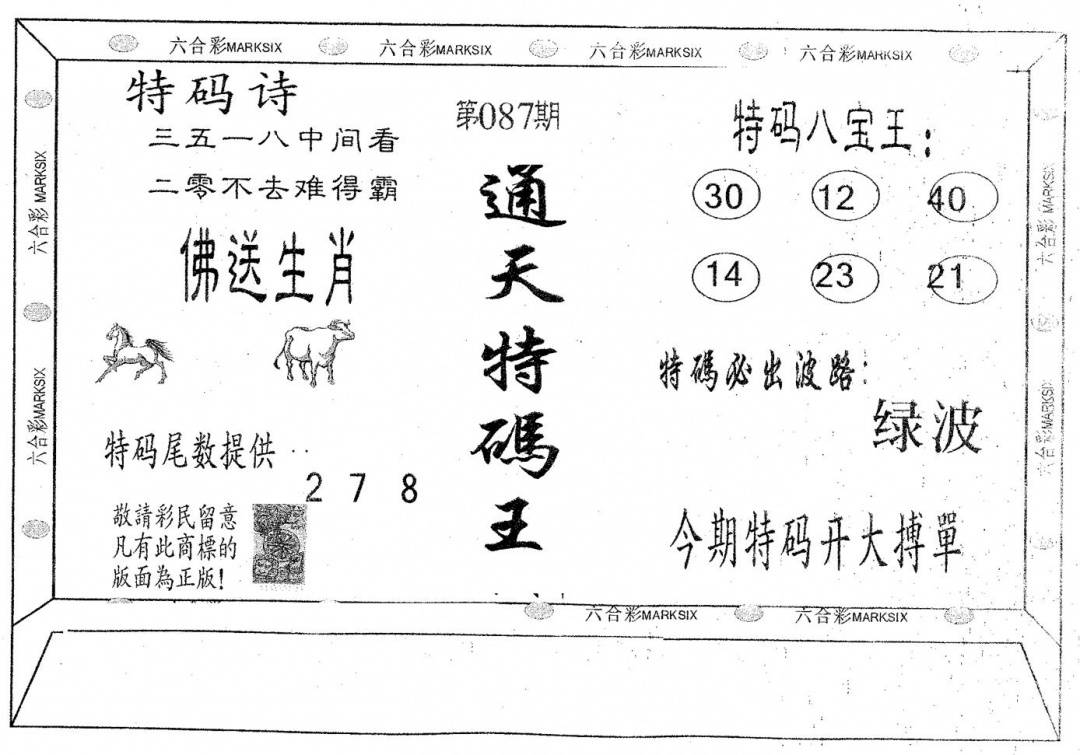 六合彩MARKSIX 六合彩MARKSIX 六合彩MARKSIX 六合彩MARKSIX
六合彩 MARKSIX
六合彩MARKSIX
特码诗
三五一八中间看
二零不去难得霸
佛送生肖
特码尾数提供
2 7 8
敬請彩民留意
凡有此商標的
版面為正版!
第087期
通天特碼王
特码八宝王:
30 12 40
14 23 21
特碼必出波路:
绿波
今期特码开大搏單
六合彩 MARKSIX
六合彩MARKSIX
六合彩MARKSIX 六合彩MARKSIX